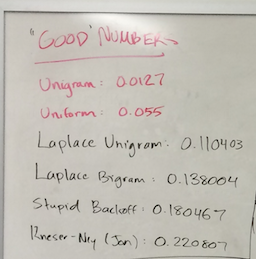 "GOOD" NUMBERS
Unigram: 0.0127
Uniform: 0.055
Laplace Unigram: 0.110403
Laplace Bigram: 0.138004
Stupid Backoff: 0.180467
Kneser-Ney (Jon): 0.220807